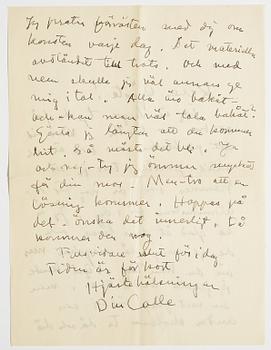 Jag pratar förresten med dig om
konsten varje dag. Det materiella
avståndet till trots. Och med
vem skulle jag väl annars ge
mig i tal. Alla äro bakåt-
och kan man väl tala bakåt?
Gärta jag längtar att du kommer
hit. Så måste det bli. Ja
och nej - ty jag ömmar mycket
för din mor. Men tro att en
lösning kommer. Hoppas på
det - önska det innerligt, så
kommer den nog.
Tillsvidare slut för idag
Tiden är för kort
Hjärtehälsningar
Din Calle